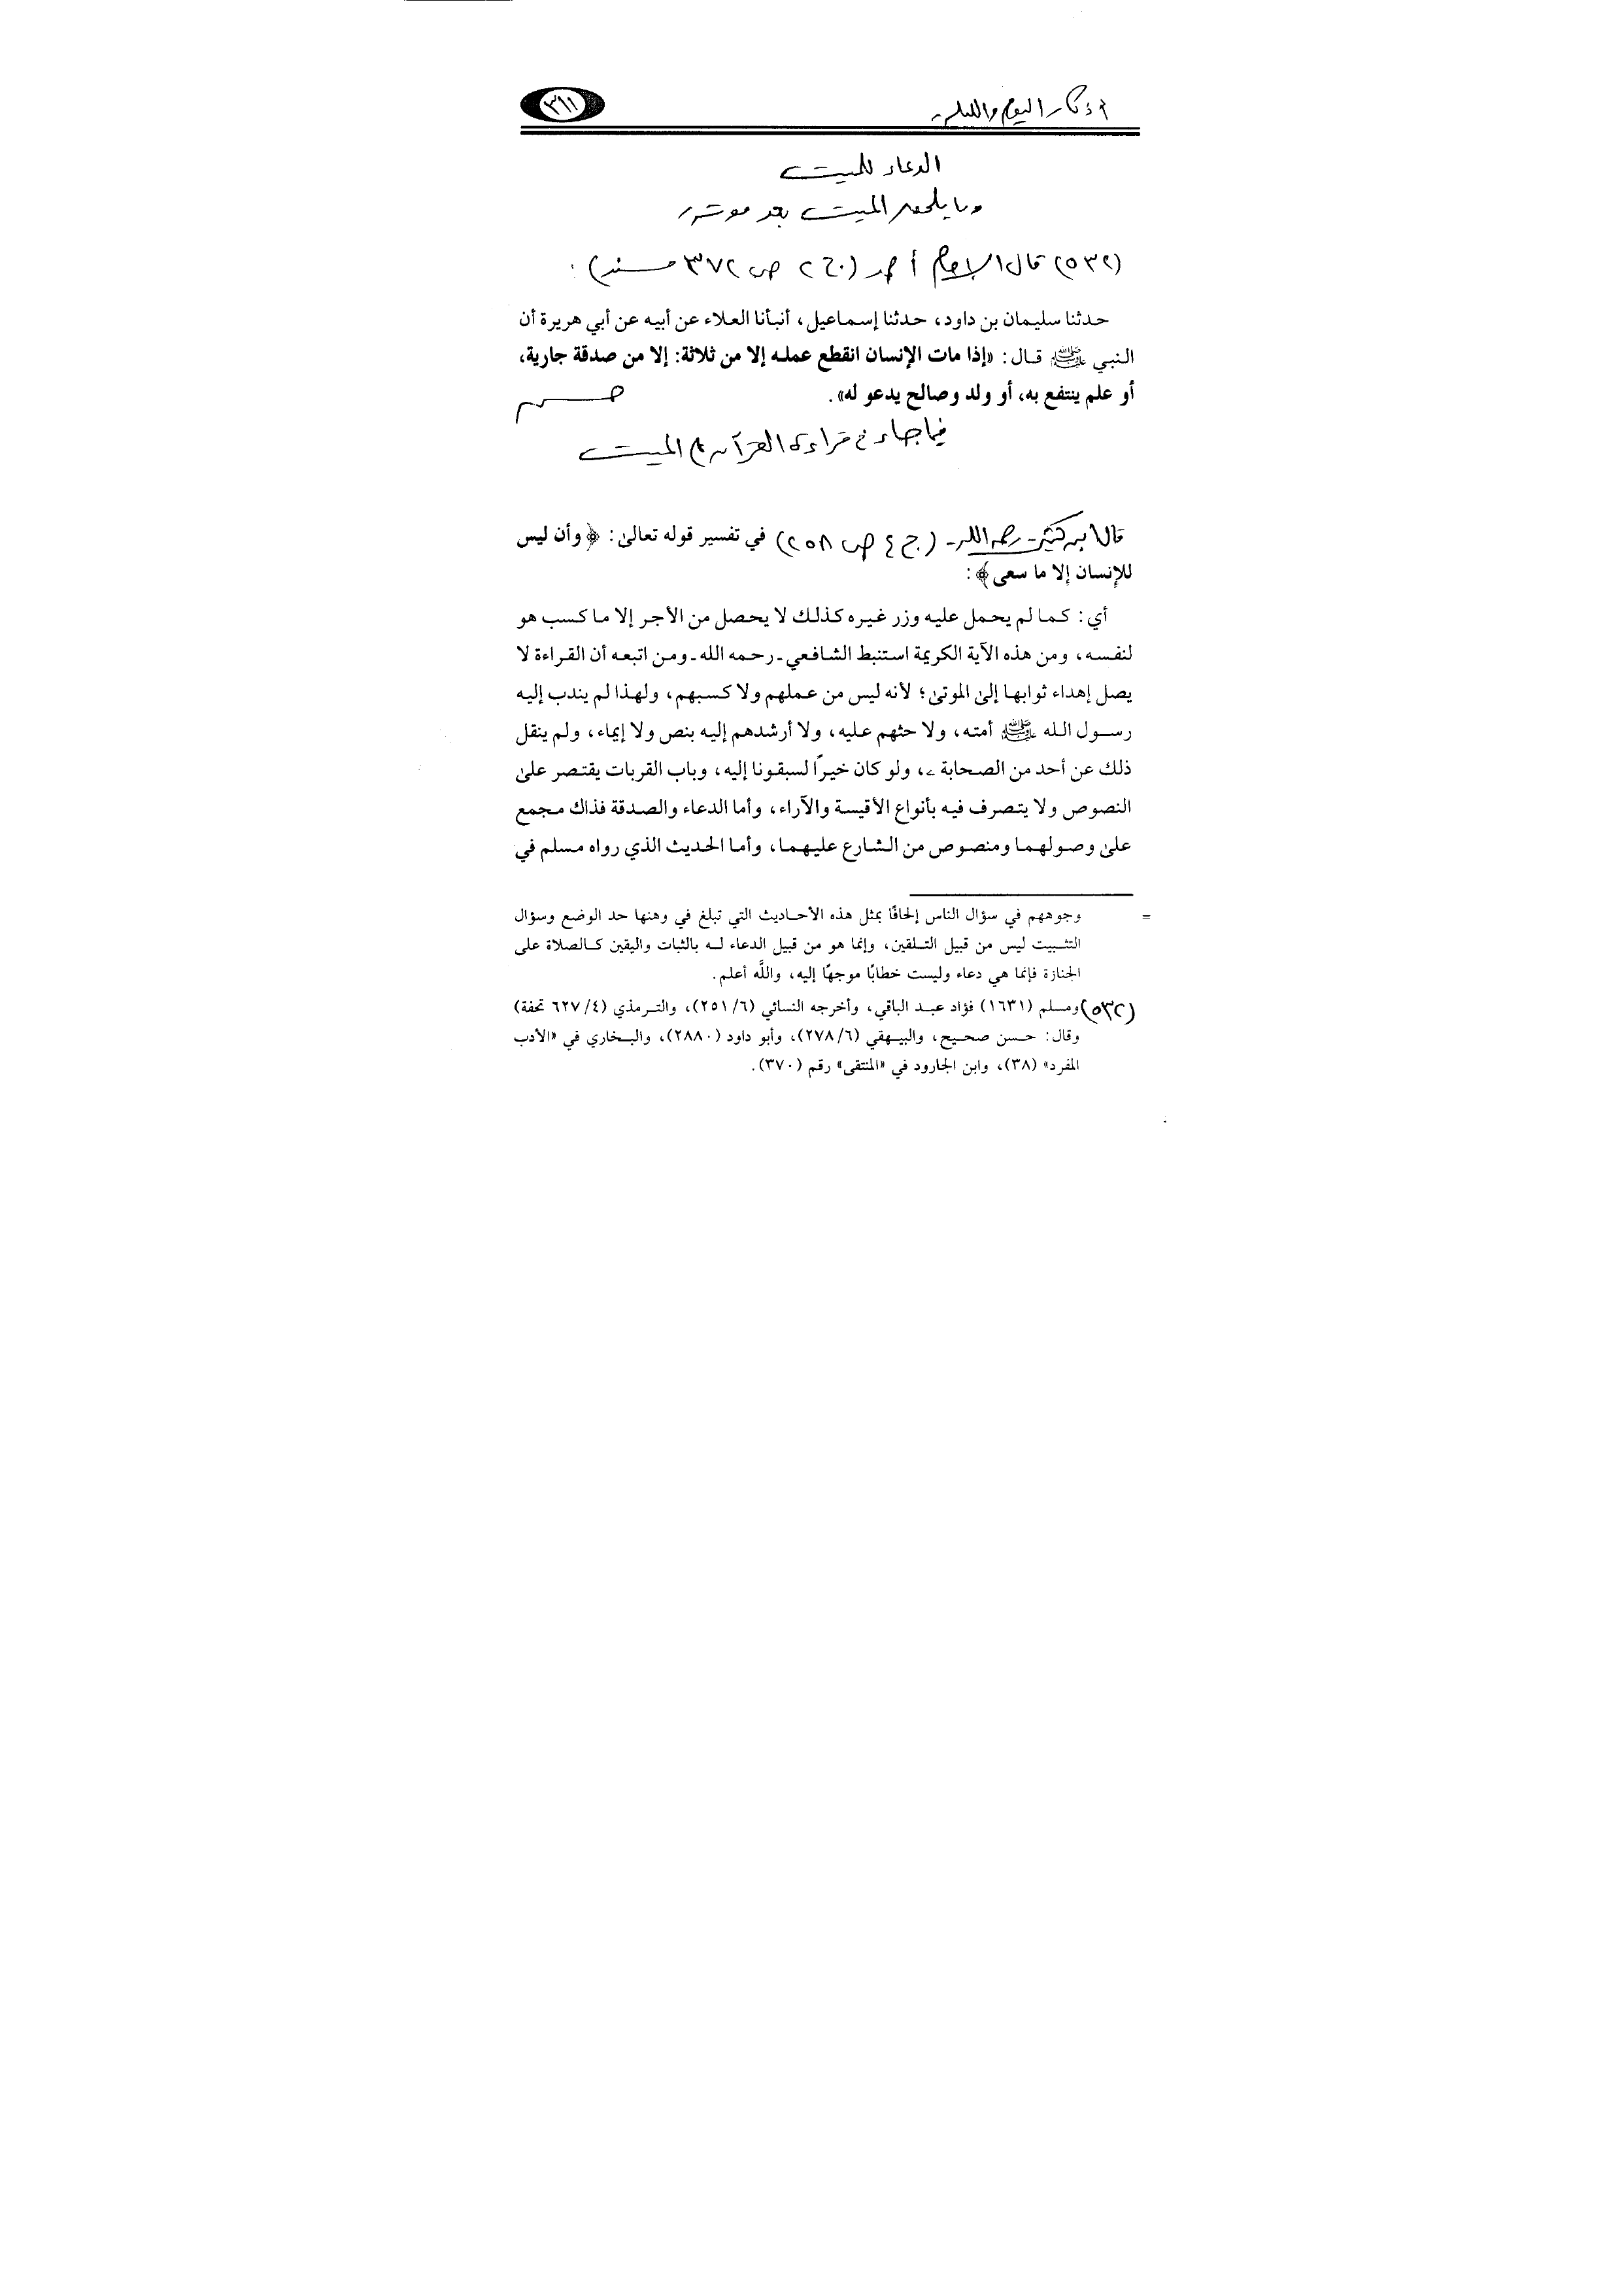 أذكار اليوم والليلة
٣١١
الدعاء للميت
وما يلحق الميت بعد موته
(٥٣٢) قال الإمام أحمد (ج ٢ ص ٣٧٢ مسند):
حدثنا سليمان بن داود، حدثنا إسماعيل، أنبأنا العلاء عن أبيه عن أبي هريرة أن
النبي ﷺ قال: «إذا مات الإنسان انقطع عمله إلا من ثلاثة: إلا من صدقة جارية،
أو علم ينتفع به، أو ولد وصالح يدعو له».
فيما جاء في قراءة القرآن الميت
قال ابن كثير - رحمه الله - (ج ٤ ص ٢٥٨) في تفسير قوله تعالىٰ: ﴿وأن ليس
للإنسان إلا ما سعى﴾:
أي: كما لم يحمل عليه وزر غيره كذلك لا يحصل من الأجر إلا ما كسب هو
لنفسه، ومن هذه الآية الكريمة استنبط الشافعي - رحمه الله - ومن اتبعه أن القراءة لا
يصل إهداء ثوابها إلىٰ الموتىٰ؛ لأنه ليس من عملهم ولا كسبهم، ولهذا لم يندب إليه
رسول الله ﷺ أمته، ولا حثهم عليه، ولا أرشدهم إليه بنص ولا إيماء، ولم ينقل
ذلك عن أحد من الصحابة، ولو كان خيرًا لسبقونا إليه، وباب القربات يقتصر علىٰ
النصوص ولا يتصرف فيه بأنواع الأقيسة والآراء، وأما الدعاء والصدقة فذاك مجمع
علىٰ وصولهما ومنصوص من الشارع عليهما، وأما الحديث الذي رواه مسلم في
= وجوههم في سؤال الناس إلحافًا بمثل هذه الأحاديث التي تبلغ في وهنها حد الوضع وسؤال
التثبيت ليس من قبيل التلقين، وإنما هو من قبيل الدعاء له بالثبات واليقين كالصلاة على
الجنازة فإنما هي دعاء وليست خطابًا موجهًا إليه، واللَّه أعلم.
(٥٣٢) ومسلم (١٦٣١) فؤاد عبد الباقي، وأخرجه النسائي (٢٥١/٦)، والترمذي (٦٢٧/٤ تحفة)
وقال: حسن صحيح، والبيهقي (٢٧٨/٦)، وأبو داود (٢٨٨٠)، والبخاري في «الأدب
المفرد» (٣٨)، وابن الجارود في «المنتقى» رقم (٣٧٠).